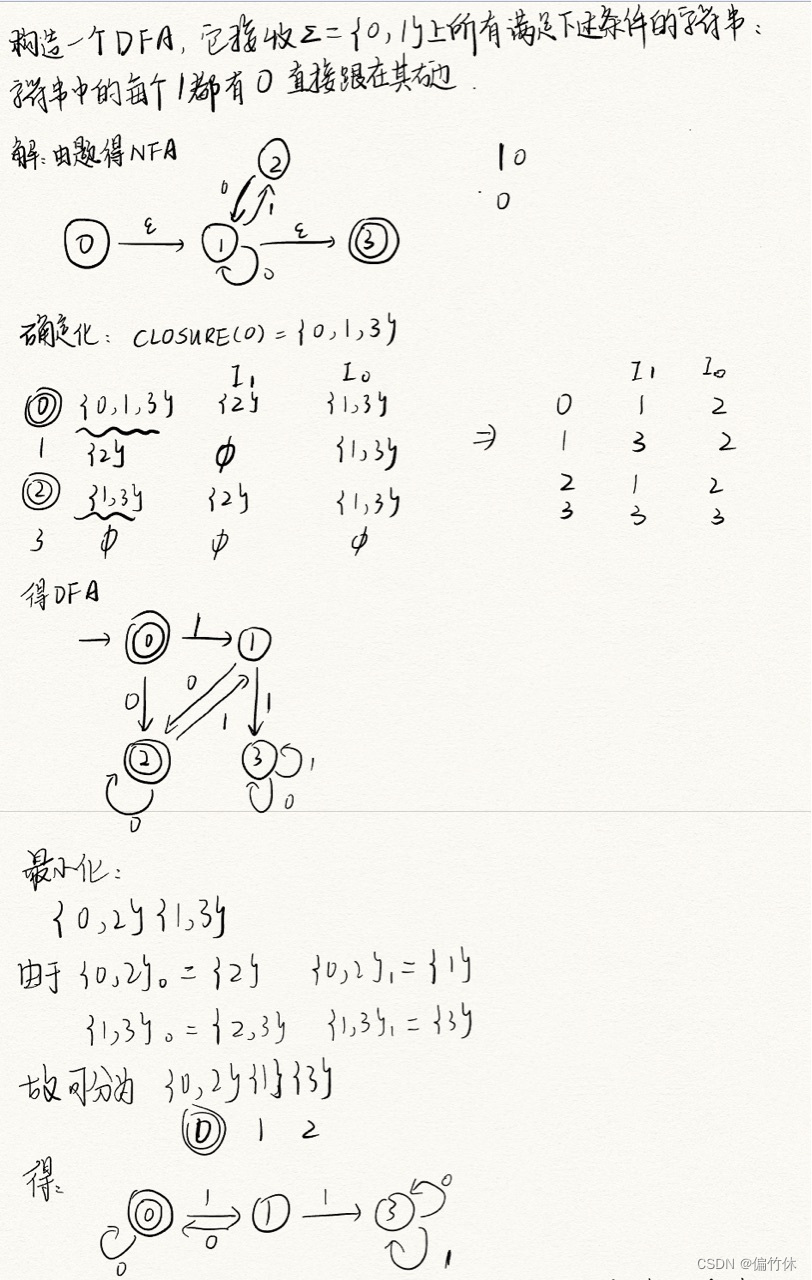 构造一个DFA,它接收Σ={0,1}上所有满足下述条件的字符串:
字符串中的每个1都有0直接跟在其右边.
解:由题得NFA
10
0
2
0
1
0 ε 1 ε 3
0
确定化: CLOSURE(0)={0,1,3}
I₁ I₀
0 {0,1,3} {2} {1,3}
1 {2} φ {1,3}
2 {1,3} {2} {1,3}
3 φ φ φ
⇒
I₁ I₀
0 1 2
1 3 2
2 1 2
3 3 3
得DFA
→ 0 1 1
0 0 1 1
2 3 1
0 0
最小化:
{0,2}{1,3}
由于{0,2}₀={2} {0,2}₁={1}
{1,3}₀={2,3} {1,3}₁={3}
故可分为 {0,2}{1}{3}
0 1 2
得:
0 1 1 1 3 0
0 0 1
CSDN @偏竹休